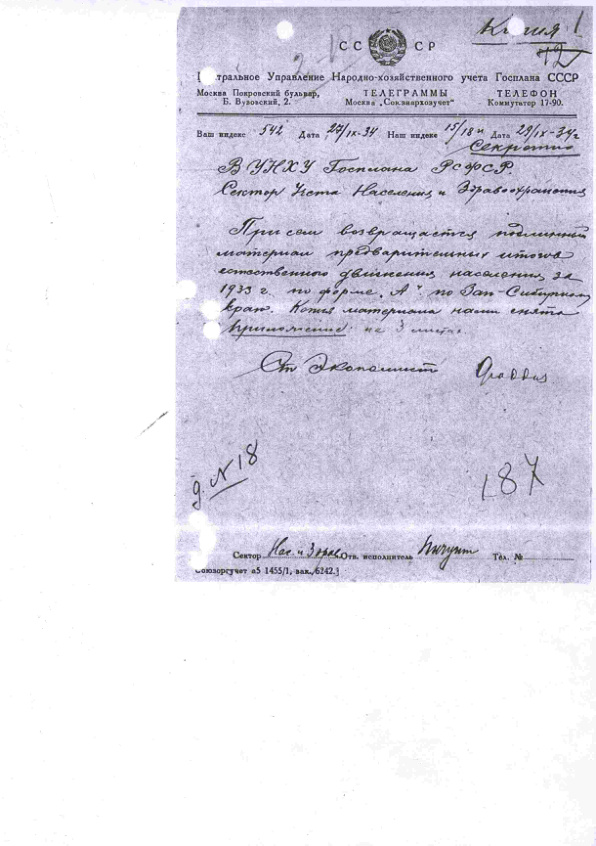 Копия 1
12
СС СР
Центральное Управление Народно-хозяйственного учета Госплана СССР
Москва Покровский бульвар, Б. Вузовский, 2. ТЕЛЕГРАММЫ Москва „Союзнархозучет" ТЕЛЕФОН Коммутатор 17-90.
Ваш индекс 542 Дата 27/IX-34 Наш индекс 15/18 Дата 29/IX-34г
Секретно
В УНХУ Госплана РСФСР.
Сектор Учета Населения и Здравоохранения
При сем возвращается подлинный
материал предварительных итогов
естественного движения населения за
1933 г. по форме „А" по Зап-Сибирскому
краю. Копия материала нами снята
Приложение: на 3 листах.
Ст Экономист
д. N 18
187
Сектор Нас. и Здрав. Отв. исполнитель Тел. №
Союзоргучет а5 1455/1, зак. 6242.